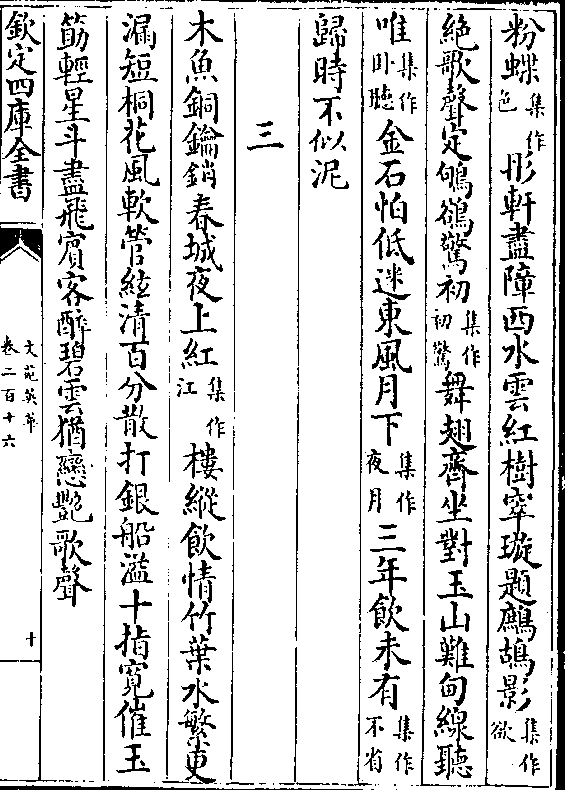 粉蝶集作色彤軒盡障西水雲紅樹窣璇題鷓鴣影集作欲
絶歌聲定鸲鵒驚初集作初驚舞翅齊坐對玉山難甸線聽
唯集作卧聽金石怕低迷東風月下集作夜月三年飲未有集作不省
歸時不似泥
三
木魚銅鑰銷春城夜上紅集作江樓縱飲情竹葉水繁更
漏短桐花風軟管絃清百分散打銀船溢十指寛催玉
筯輕星斗盡飛賓客醉碧雲猶戀艷歌聲
欽定四庫全書
文苑英華
卷二百十六
十